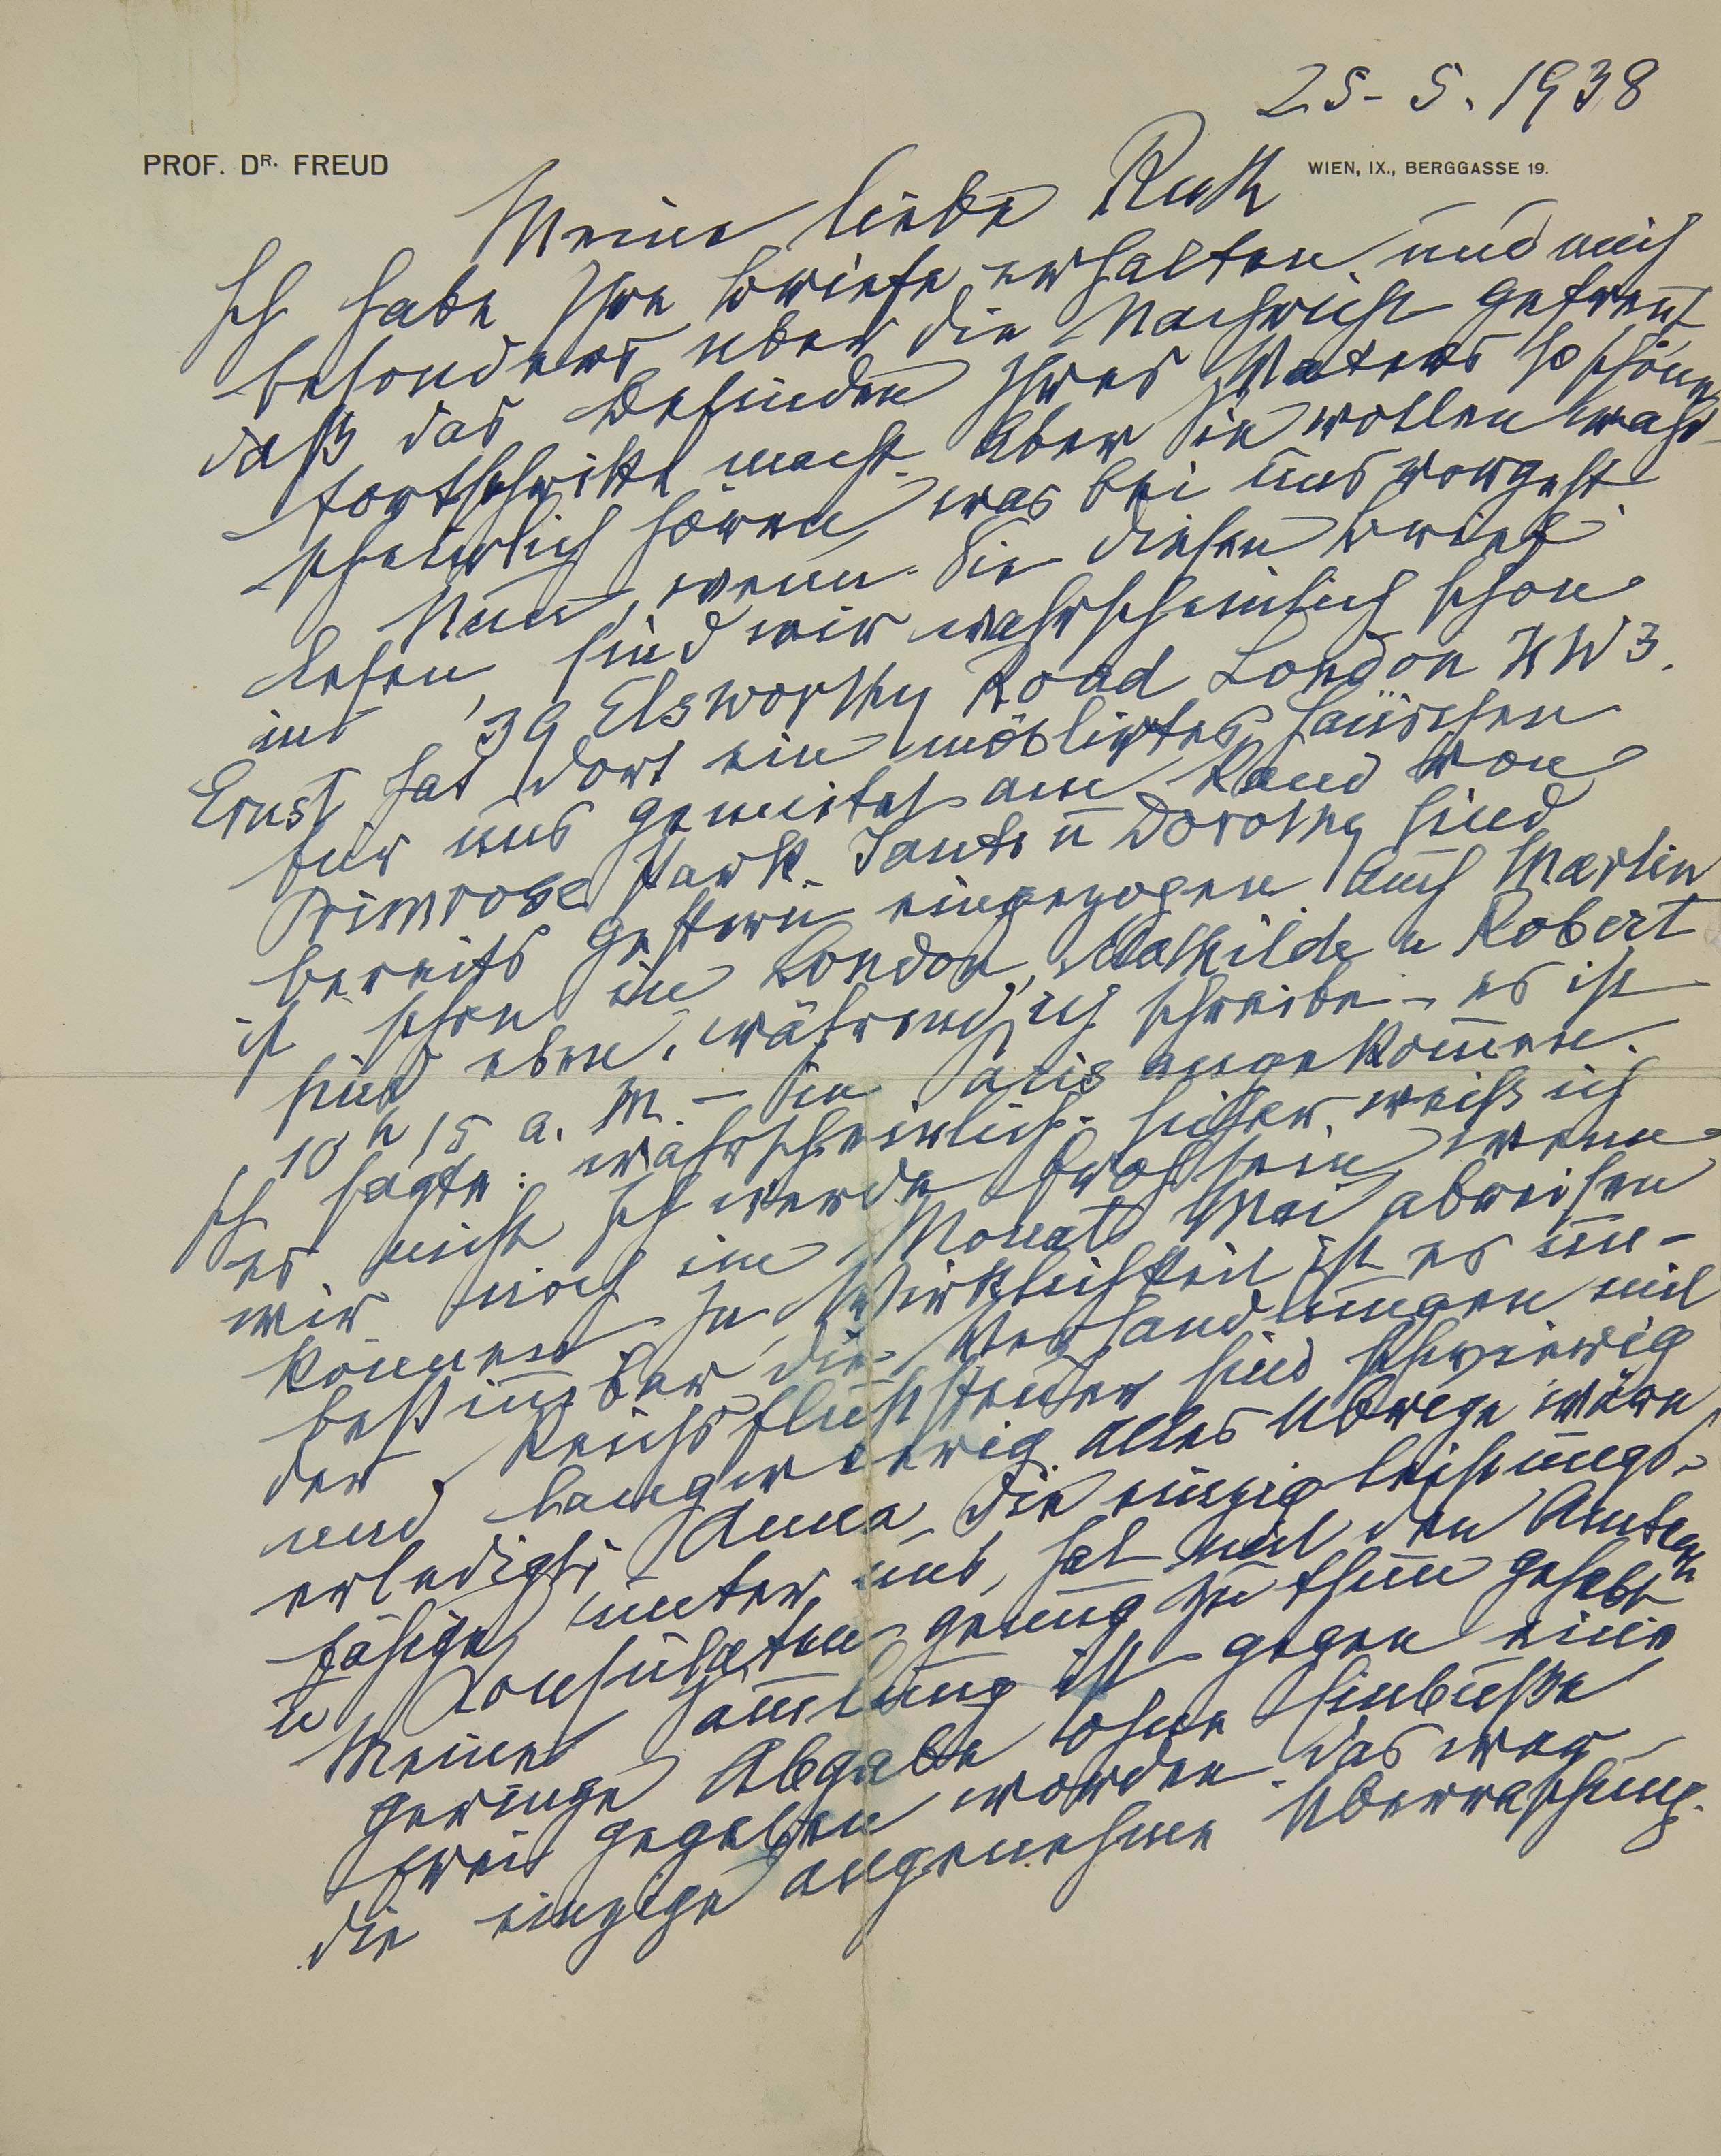 25-5. 1938
PROF. DR. FREUD
WIEN, IX., BERGGASSE 19.
Meine liebe Ruth
Ich habe Ihre Briefe erhalten und mich
besonders über die Nachricht gefreut
daß das Befinden Ihres Vaters so schöne
Fortschritte macht. Aber Sie wollen wahr-
scheinlich hören was bei uns vorgeht.
Nun, wenn Sie diesen Brief
lesen, sind wir wahrscheinlich schon
in 39 Elsworthy Road London NW3.
Ernst hat dort ein möblirtes Häuschen
für uns gemietet am Rand von
Primrose Park. Tante u Dorothy sind
bereits gestern eingezogen. Auch Martin
ist schon in London, Mathilde u Robert
sind eben, während ich schreibe – es ist
10h 15 a. M. – in Paris angekommen.
Ich sagte: wahrscheinlich. Sicher weiß ich
es nicht. Ich werde froh sein, wenn
wir noch im Monat Mai abreisen
können. In Wirklichkeit ist es un-
bestimmbar die Verhandlungen mit
der Reichsfluchtsteuer sind schwierig
und langwierig. Alles Übrige wäre
erledigt. Anna, die einzig leistungs-
fähige unter uns, hat mit den Ämtern
u Konsulaten genug zu thun gehabt
Meine Sammlung ist gegen eine
geringe Abgabe ohne Einbuße
frei gegeben worden. das war
die einzige angenehme Überraschung.